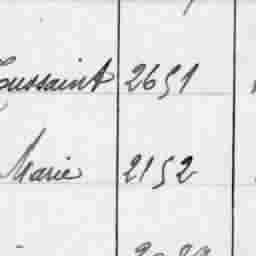 Toussaint 2651
Marie 2152